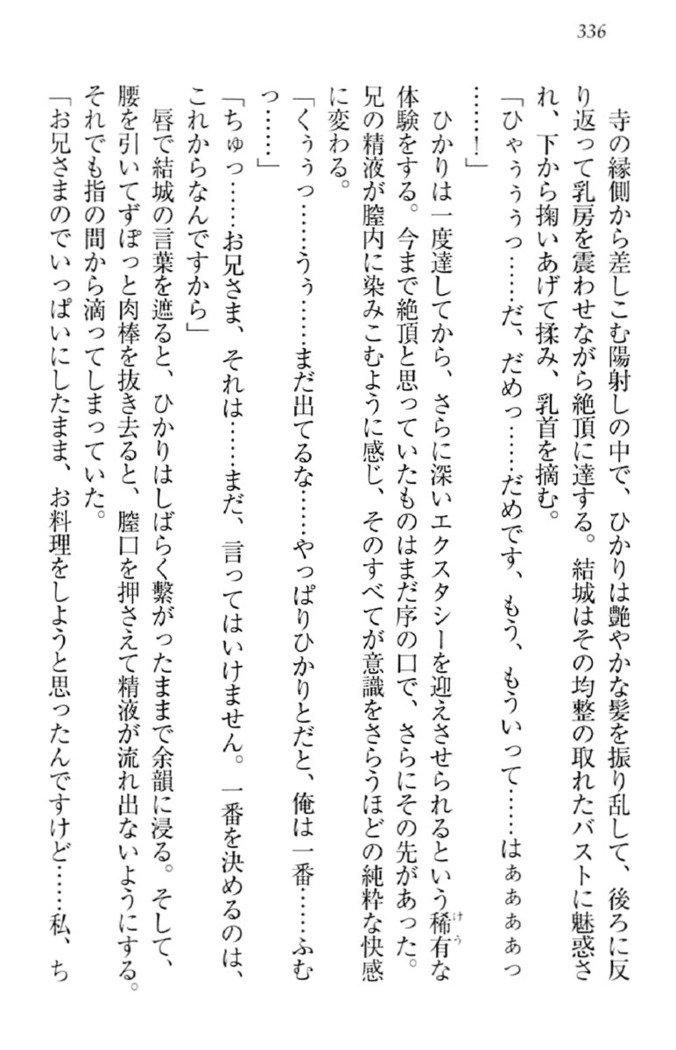 336
寺の縁側から差しこむ陽射しの中で、ひかりは艶やかな髪を振り乱して、後ろに反
り返って乳房を震わせながら絶頂に達する。結城はその均整の取れたバストに魅惑さ
れ、下から掬いあげて揉み、乳首を摘む。
「ひゃぅぅぅっ……だ、だめっ……だめです、もう、もういって……はぁぁぁぁっ
……！」
ひかりは一度達してから、さらに深いエクスタシーを迎えさせられるという稀有な
けう
体験をする。今まで絶頂と思っていたものはまだ序の口で、さらにその先があった。
兄の精液が膣内に染みこむように感じ、そのすべてが意識をさらうほどの純粋な快感
に変わる。
「くぅぅっ……うぅ……まだ出てるな……やっぱりひかりとだと、俺は一番……ふむ
っ……」
「ちゅっ……お兄さま、それは……まだ、言ってはいけません。一番を決めるのは、
これからなんですから」
唇で結城の言葉を遮ると、ひかりはしばらく繋がったままで余韻に浸る。そして、
腰を引いてずぽっと肉棒を抜き去ると、膣口を押さえて精液が流れ出ないようにする。
それでも指の間から滴ってしまっていた。
「お兄さまのでいっぱいにしたまま、お料理をしようと思ったんですけど……私、ち